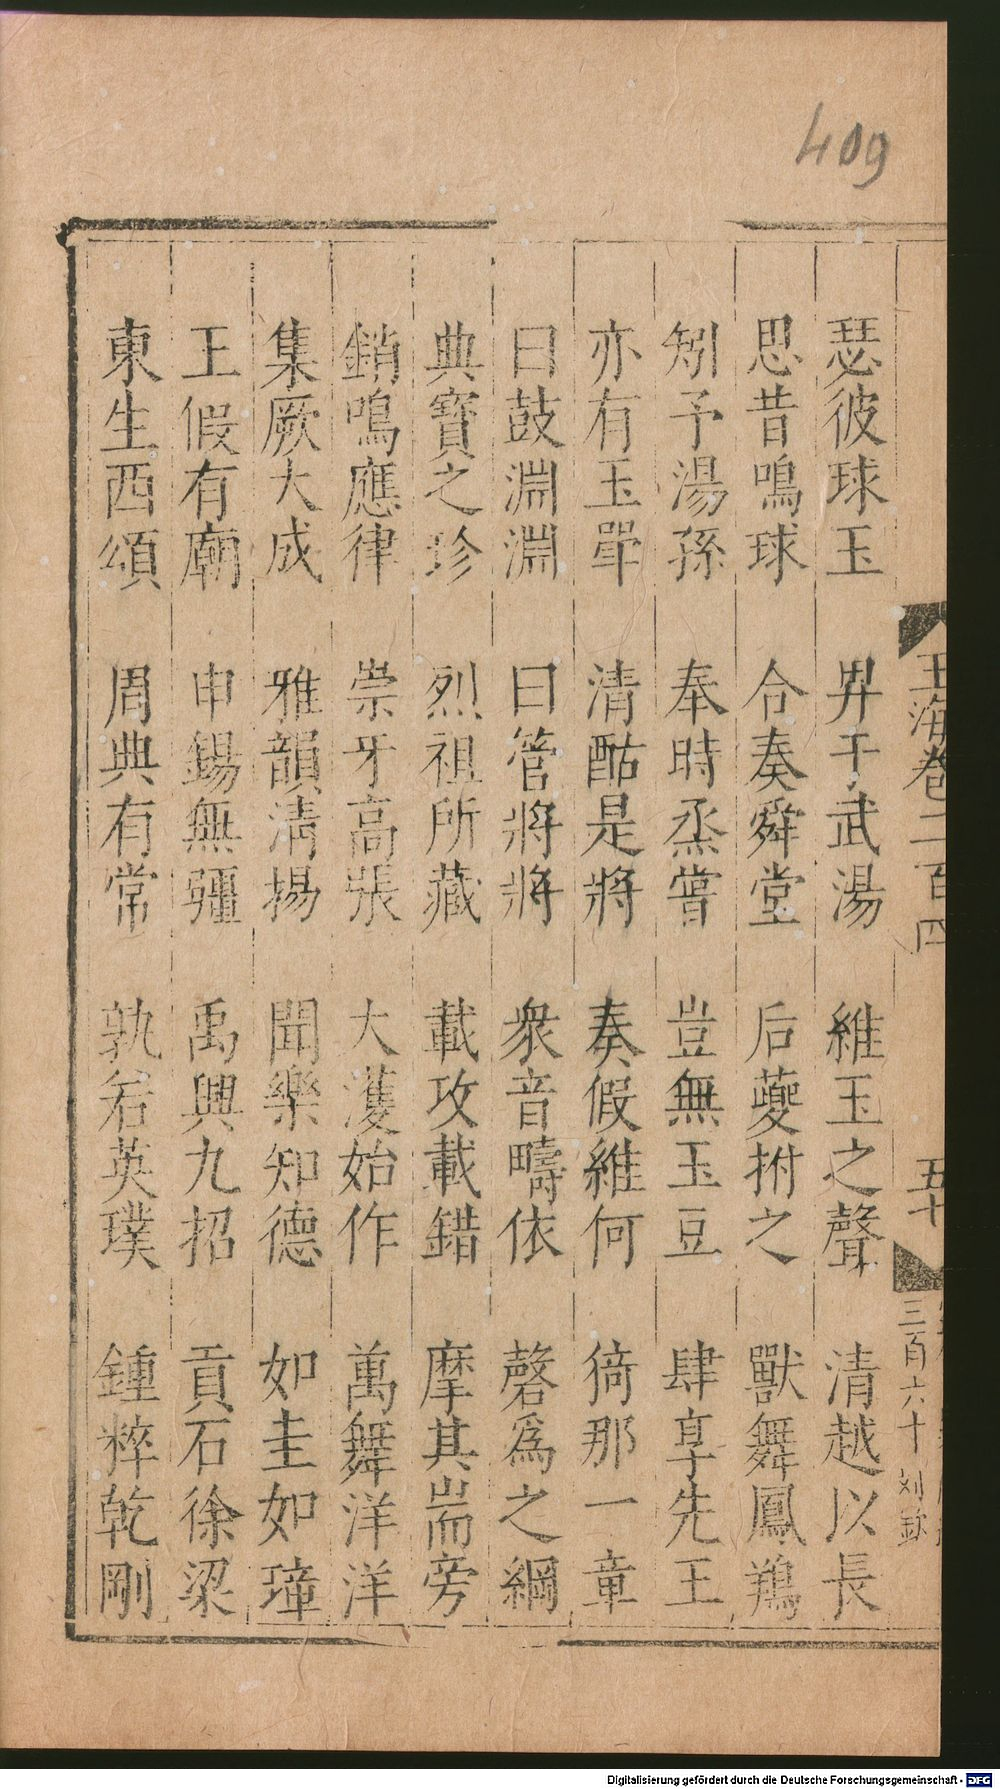 409
瑟彼球玉 昇于武湯 維玉之聲 清越以長
思昔鳴球 合奏舜堂 后夔拊之 獸舞鳳鶬
矧予湯孫 奉時烝嘗 豈無玉豆 肆享先王
亦有玉斝 清酤是將 奏假維何 猗那一章
曰鼓淵淵 曰管將將 衆音疇依 磬爲之綱
典寶之珍 烈祖所藏 載攻載錯 摩其耑旁
銷鳴應律 崇牙高張 大濩始作 萬舞洋洋
集厥大成 雅韻清揚 聞樂知德 如圭如璋
王假有廟 申錫無疆 禹興九招 貢石徐梁
東生西頌 周典有常 孰若英璞 鍾粹乾剛
玉海卷二百四 五十 三百六十 刘
Digitalisierung gefördert durch die Deutsche Forschungsgemeinschaft - DFG